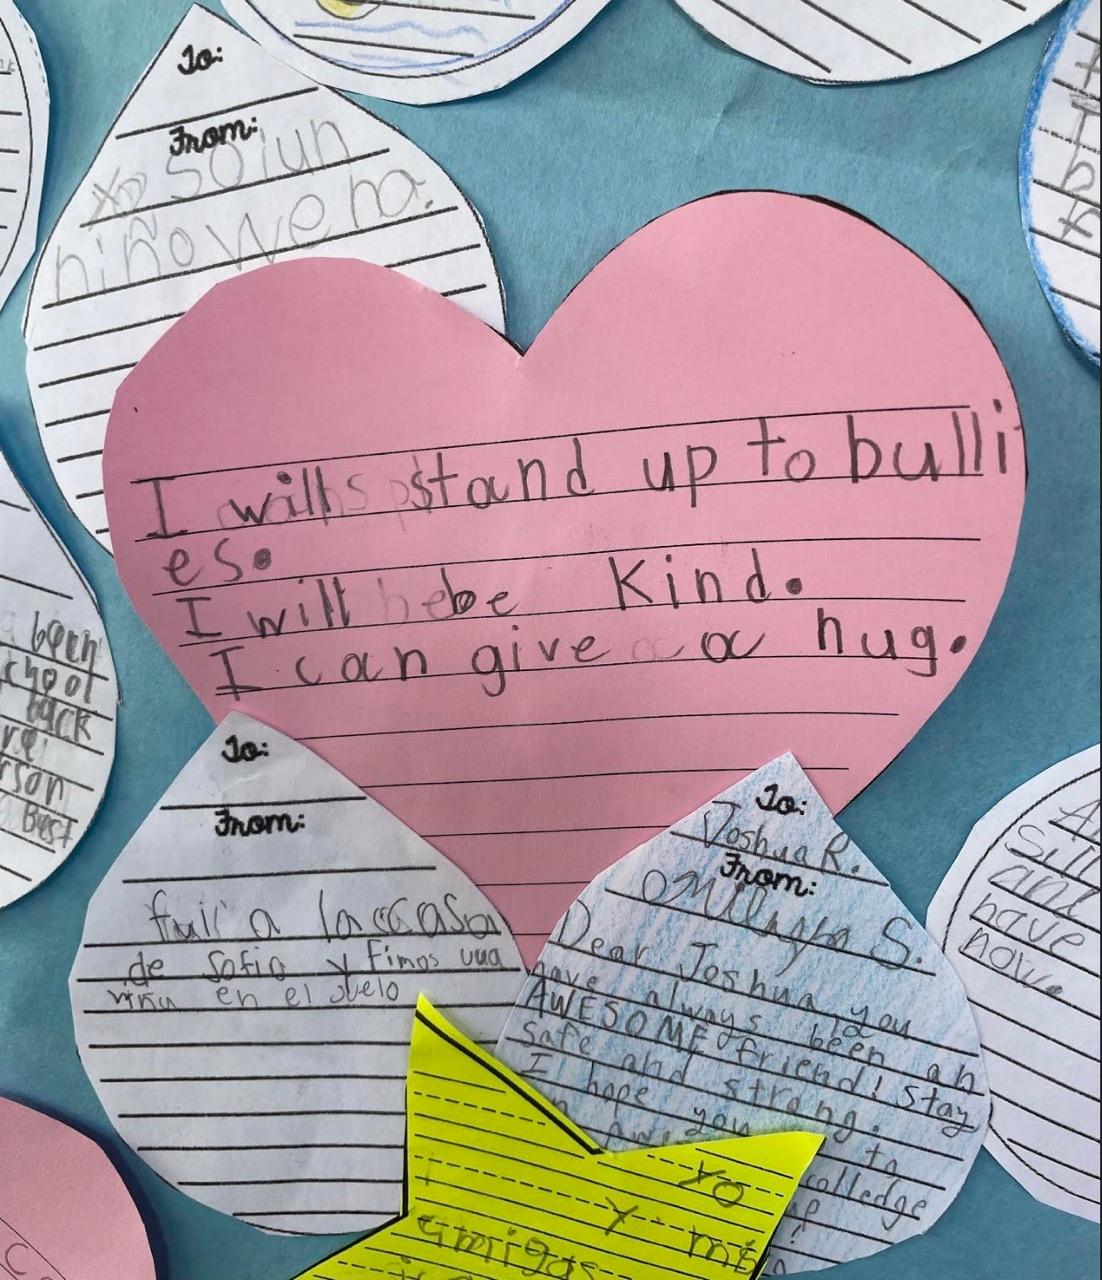 To:
From:
Yo soiun
niño wena.
I will stand up to bulli
es.
I will be kind.
I can give a hug.
been
chool
back
rson
Best
To:
From:
fuii a la ccasa
de Sofia y Fimos una
en el suelo
To:
Joshua R.
From:
S.
Dear Joshua you
have always been an
AWESOME friend! Stay
safe and strong.
I hope you
to
colledge
!
yo
y mis
amigas
and
have
now.